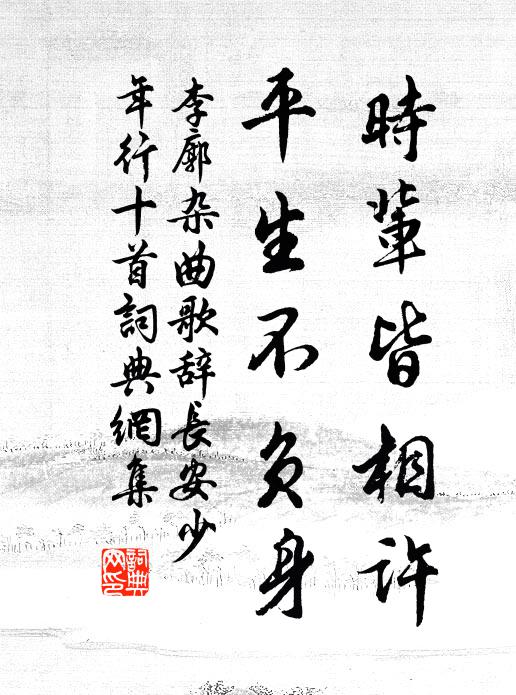 時輩皆相許
平生不负身
李廓杂曲歌辞長安少
年行十首詞典網集
詞典
网印